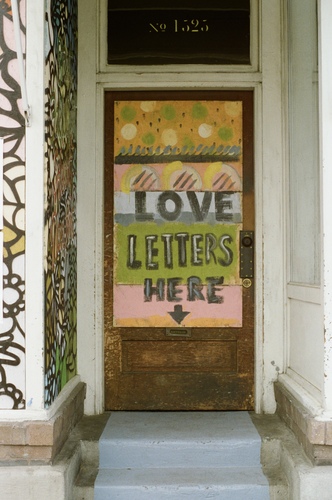 No 1525
LOVE
LETTERS
HERE